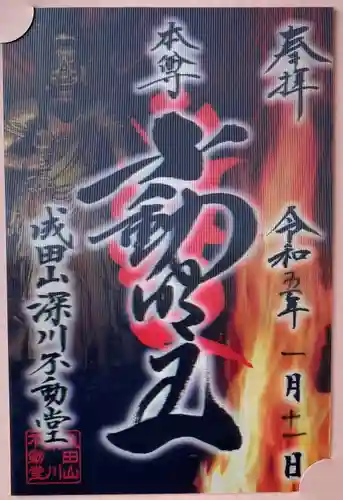 奉拝
令和五年 一月十一日
本尊
不動明王
成田山深川不動堂
成田山
深川
不動堂